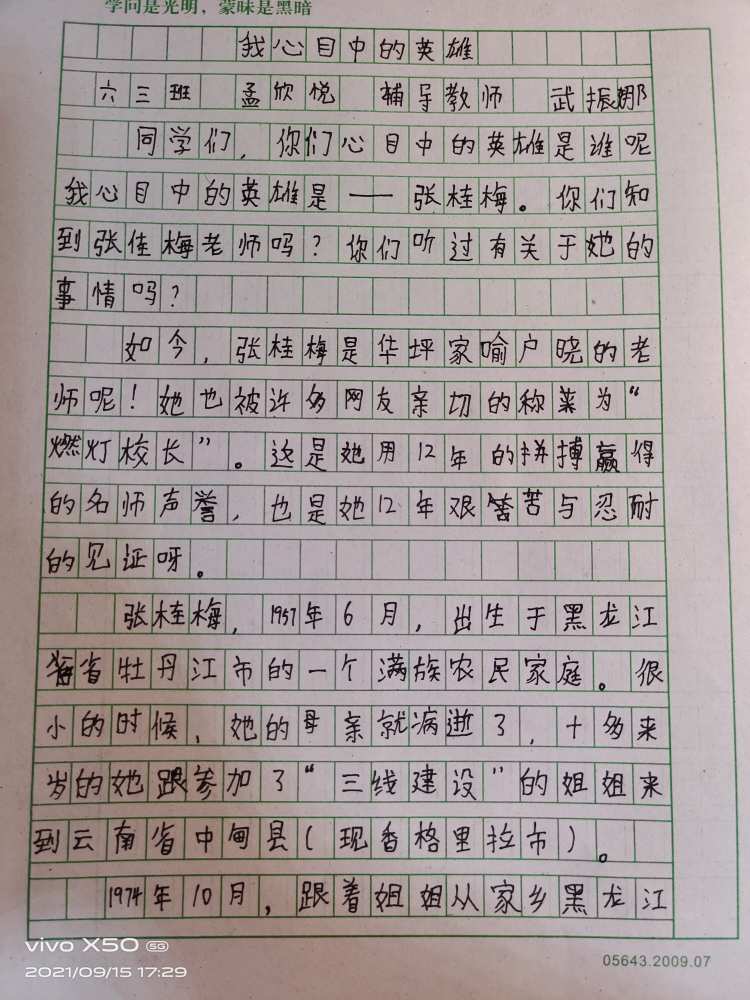 学问是光明，蒙昧是黑暗
我心目中的英雄
六三班 孟欣悦 辅导教师 武振娜
同学们，你们心目中的英雄是谁呢
我心目中的英雄是——张桂梅。你们知
到张佳梅老师吗？你们听过有关于她的
事情吗？
如今，张桂梅是华坪家喻户晓的老
师呢！她也被许多网友亲切的称某为“
燃灯校长”。这是她用12年的拼搏赢得
的名师声誉，也是她12年艰苦与忍耐
的见证呀。
张桂梅，1957年6月，出生于黑龙江
省牡丹江市的一个满族农民家庭。很
小的时候，她的母亲就病逝了，十多来
岁的她跟参加了“三线建设”的姐姐来
到云南省中甸县（现香格里拉市）。
1974年10月，跟着姐姐从家乡黑龙江
vivo X50 5G
2021/09/15 17:29
05643.2009.07